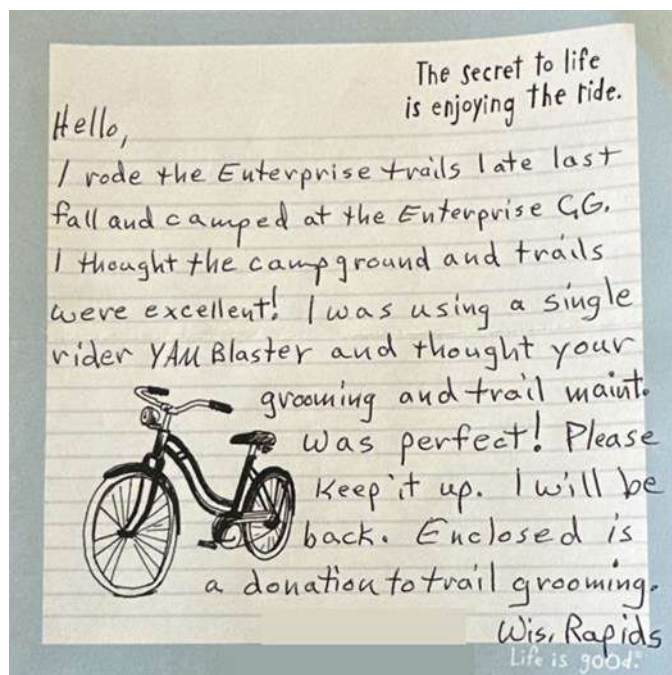 The secret to life
is enjoying the ride.
Hello,
I rode the Enterprise trails late last
fall and camped at the Enterprise CG.
I thought the campground and trails
were excellent! I was using a single
rider YAM Blaster and thought your
grooming and trail maint.
was perfect! Please
keep it up. I will be
back. Enclosed is
a donation to trail grooming.
Wis. Rapids
Life is good.